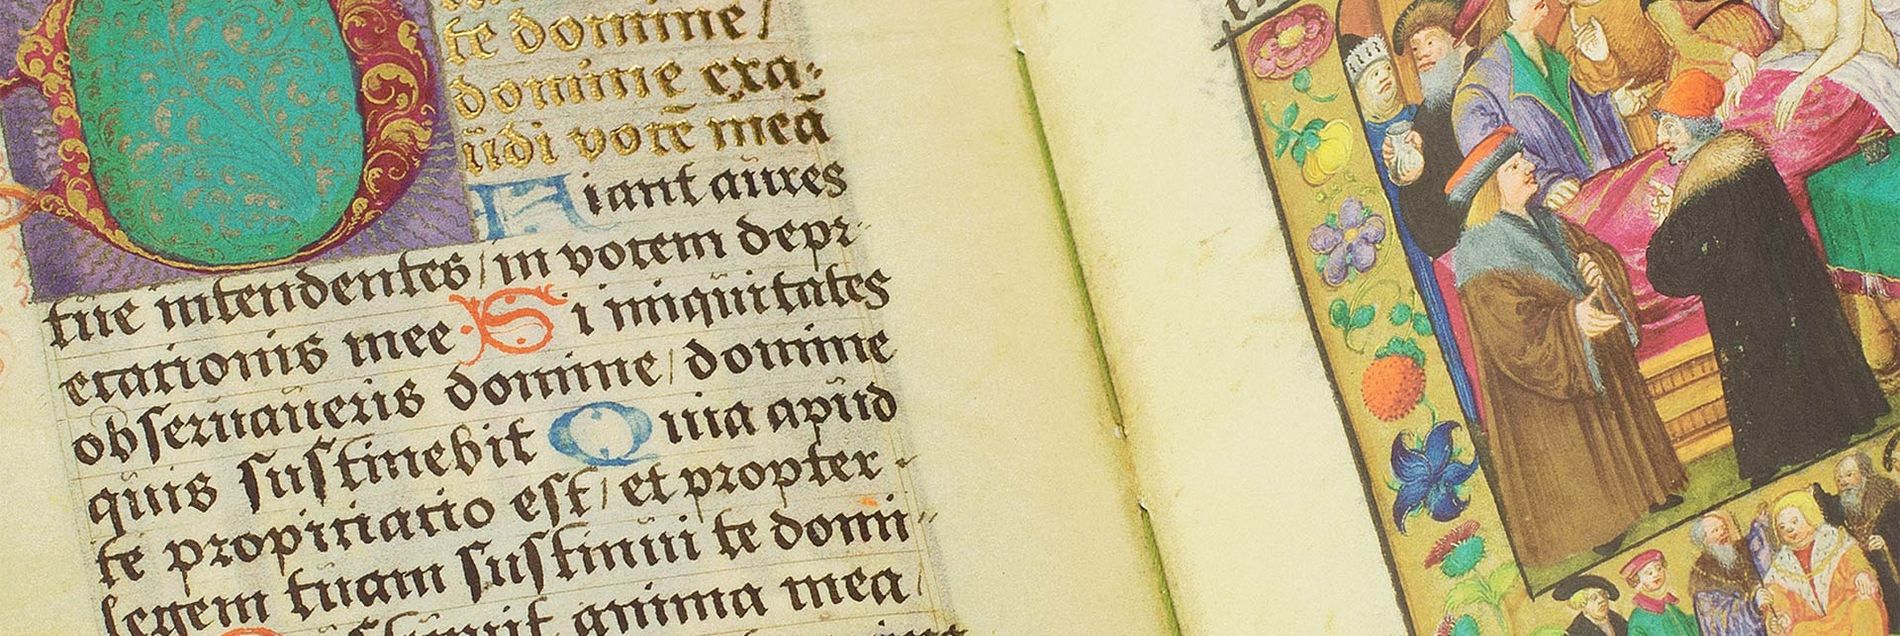 te domine/
domine exa:
üdi votē meā
Fiant aüres
tüe intendentes/in vocem depr-
ecationis mee Si iniqüitates
obserüaüeris domine/domine
qüis süstinebit Qüia apüd
te propitiatio est/et propter-
legem tüam süstinüi te domi-
anima mea